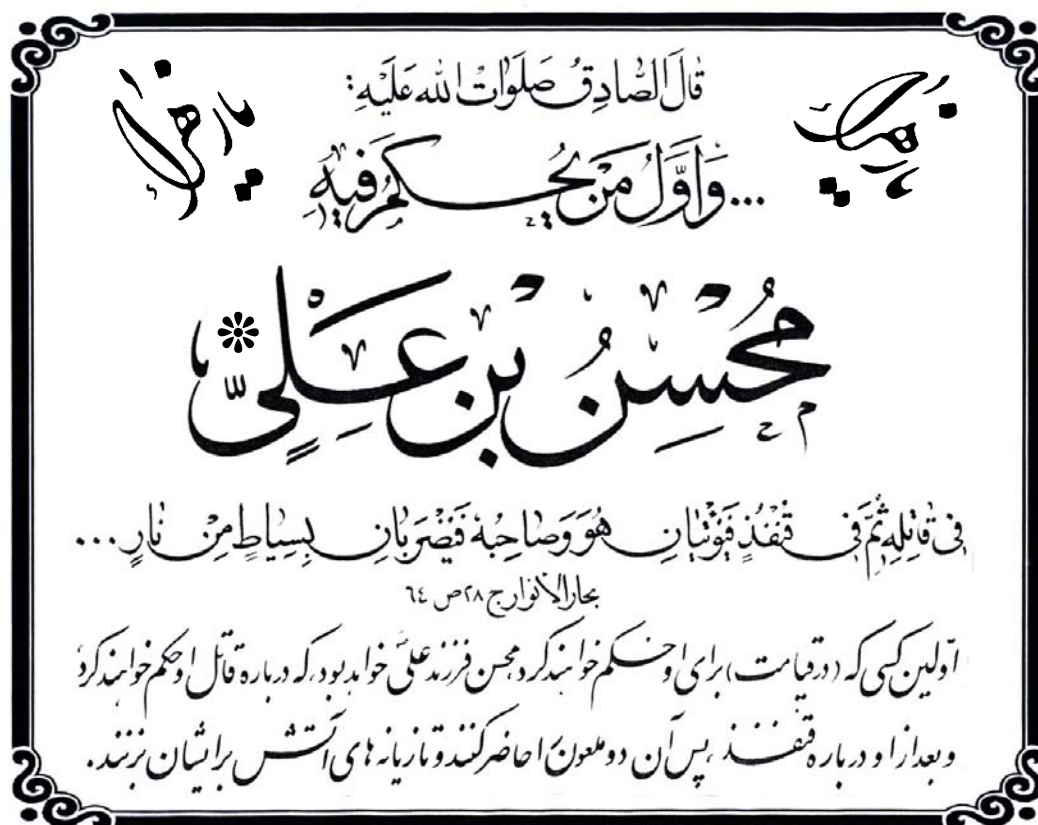 قَالَ الصَّادِقُ صَلَوَاتُ اللهِ عَلَيْهِ:
یا زهرا
...وَاَوَّلُ مَنْ یُحْکَمُ فِیهِ
مُحْسِنُ بْنُ عَلِیٍّ
فِی قَاتِلِهِ ثُمَّ فِی قُنْفُذٍ فَیُؤْتَیَانِ هُوَ وَصَاحِبُهُ فَیُضْرَبَانِ بِسِیَاطٍ مِنْ نَارٍ...
بحارالانوار ج ۲۸ ص ٦٤
اوّلین کسی که (در قیامت) برای او حکم خواهند کرد، محسن فرزند علیّ خواهد بود، که درباره قاتل او حکم خواهند کرد
و بعد از او درباره قنفذ، پس آن دو ملعون را حاضر کنند و تازیانه های آتش برایشان بزنند.